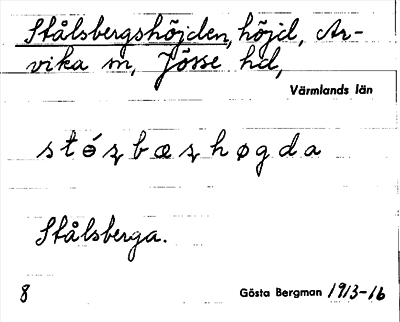 Stålsbergshöjden, höjd, Ar-
vika sn, Jösse hd,
Värmlands län
stózbæzhøgda
Stålsberga.
8 Gösta Bergman 1913-16